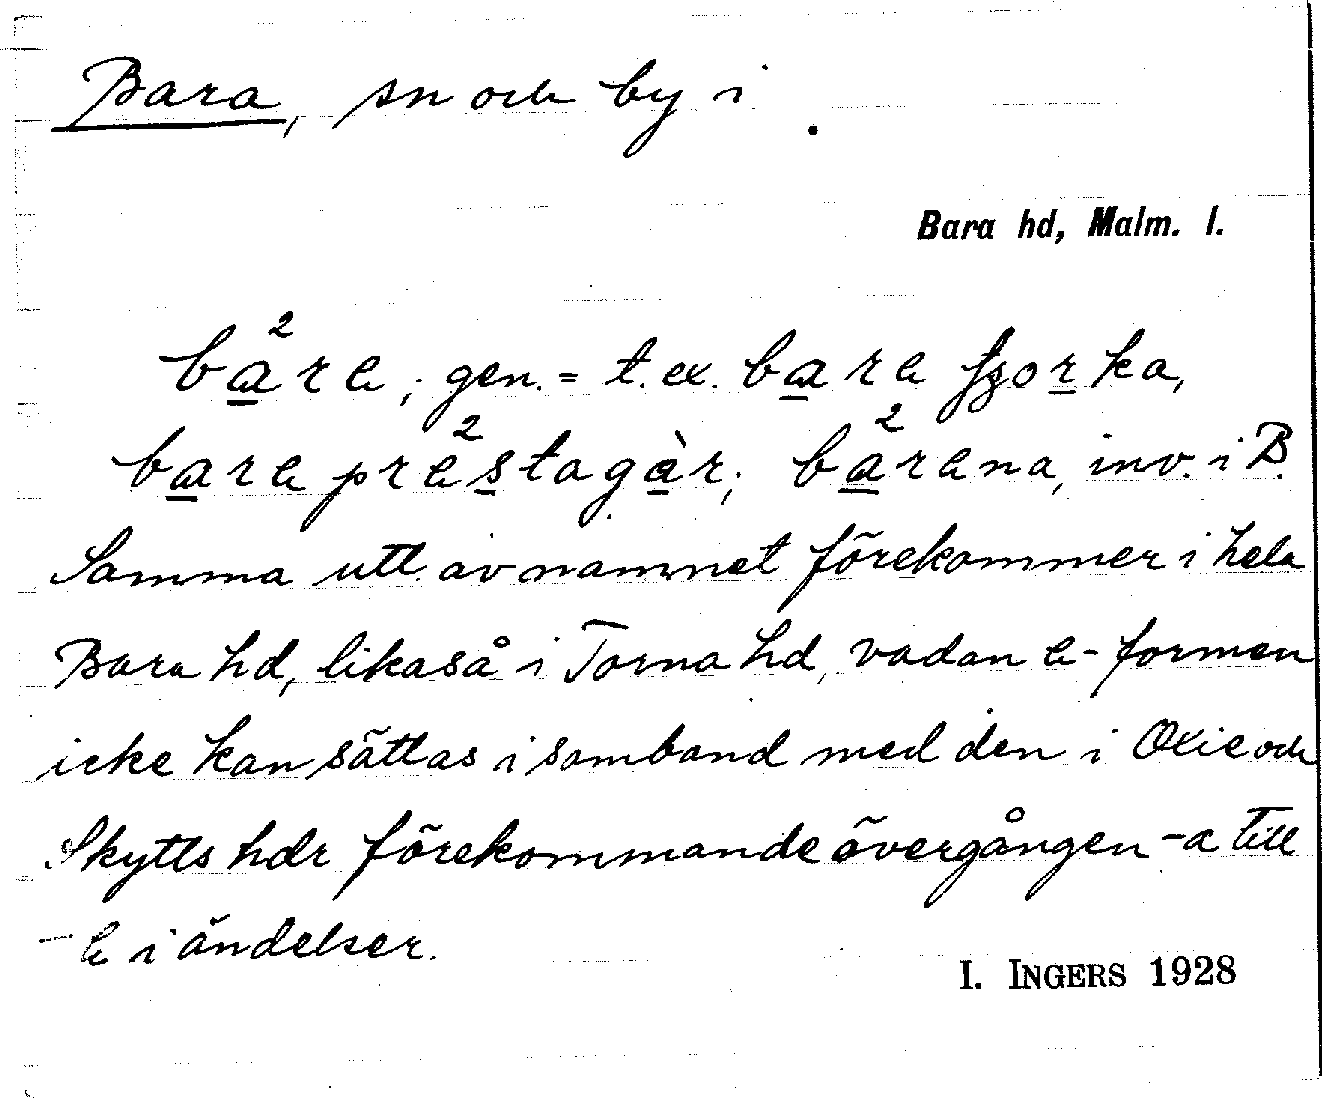 Bara, sn och by i
Bara hd, Malm. l.
ba̲²re, gen. = t. ex. ba̲re ʃʒor̲ka,
ba̲re pre²s̲tagà̲r; ba̲²rena, inv. i B.
Samma utt. av namnet förekommer i hela
Bara hd, likaså i Torna hd, vadan e-formen
icke kan sättas i samband med den i Oxie och
Skytts hdr förekommande övergången -a till
-e i ändelser.
I. INGERS 1928